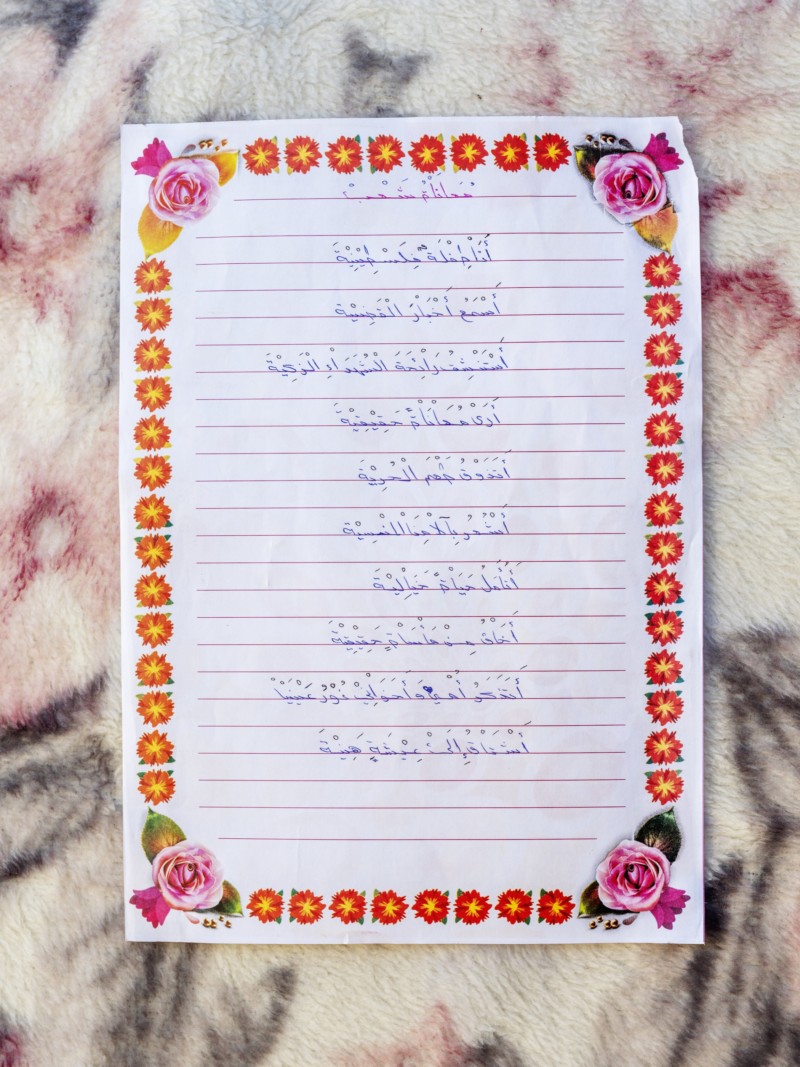 مُعَانَاةُ شَعْبٍ
أَنَا طِفْلَةٌ فِلَسْطِيْنِيَّةَ
أَسْمَعُ أَخْبَارَ الْقَضِيَّةَ
أَسْتَنْشِقُ رَائِحَةَ الْشُهَدَاْءِ الْزَكِيَّةَ
أَرَىْ مُعَانَاْةً حَقِيْقِيَّةَ
أَتَذَوَقُ طَعْمَ الْحُرِيَّةَ
أَشْعُرُ بِآلَاْمِنَا الْنَفْسِيَّةَ
أَتَأَمَلُ حَيَاْةً خَيَاْلِيَّةَ
أَخَاْفُ مِنْ مَأْسَاْةٍ حَقِيْقِيَّةَ
أَتَذَكَرُ أُمِيْ وَأَخَوَاْتِيْ نُوْرُ عَيْنَيَاْ
أَشْتَاْقُ إِلَىْ عِيْشَةٍ هَنِيَّةَ